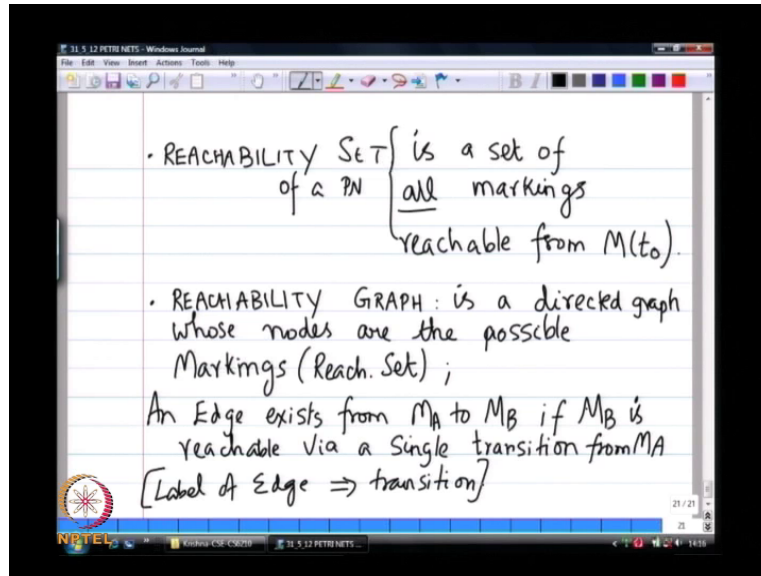 31_5_12 PETRI NETS - Windows Journal
File Edit View Insert Actions Tools Help
B I
• REACHABILITY SET is a set of
of a PN all markings
reachable from M(t₀).
• REACHABILITY GRAPH : is a directed graph
whose nodes are the possible
Markings (Reach. Set) ;
An Edge exists from M_A to M_B if M_B is
reachable via a single transition from M_A
[Label of Edge ⇒ transition]
21 / 21
21
NPTEL
Krishna-CSE-CS6210
31_5_12 PETRI NETS ...
1416